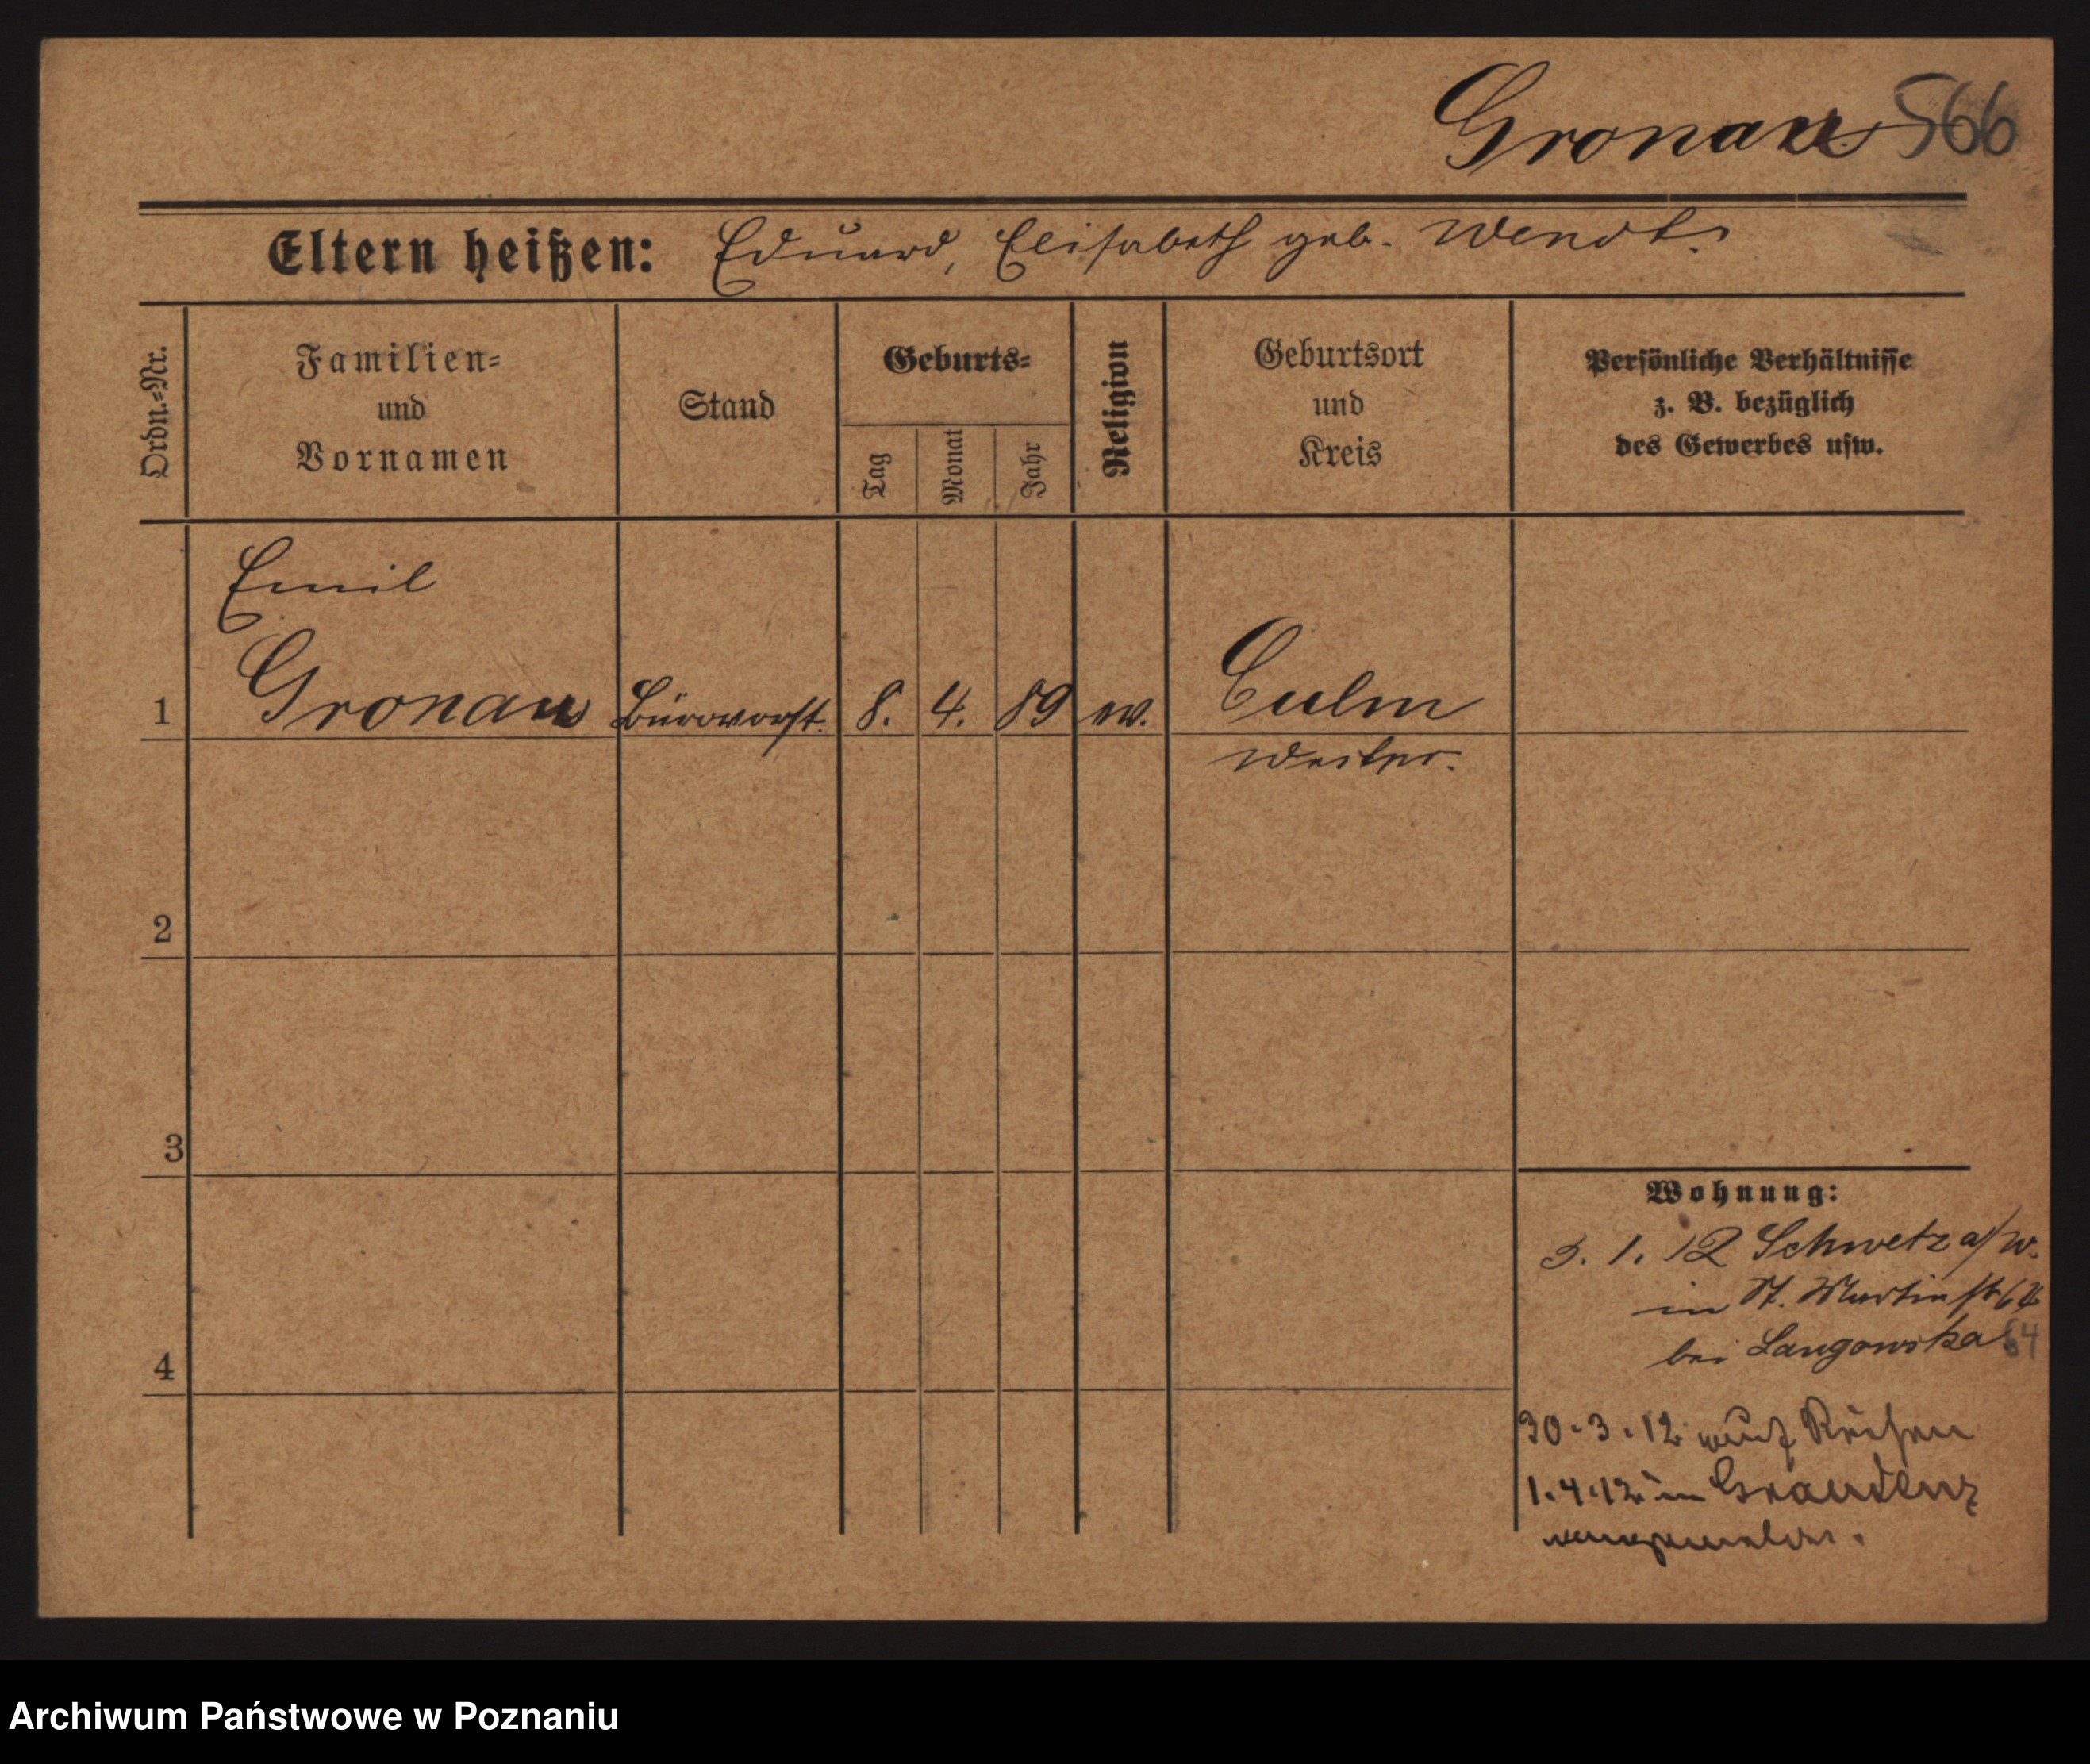 Gronau 566
Eltern heißen: Eduard, Elisabeth geb. Wendt.
Ordn.=Nr.
Familien=
und
Vornamen
Stand
Geburts=
Tag
Monat
Jahr
Religion
Geburtsort
und
Kreis
Persönliche Verhältnisse
z. B. bezüglich
des Gewerbes usw.
Emil
1 Gronau Bürovorst. 8. 4. 89 ev. Culm
Westpr.
2
3
4
Wohnung:
3. 1. 12 Schwetz a/W.
in St. Martinstr 64
bei Langowska 64
30.3.12 auf Reisen
1.4.12 in Graudenz
angemeldet.
Archiwum Państwowe w Poznaniu